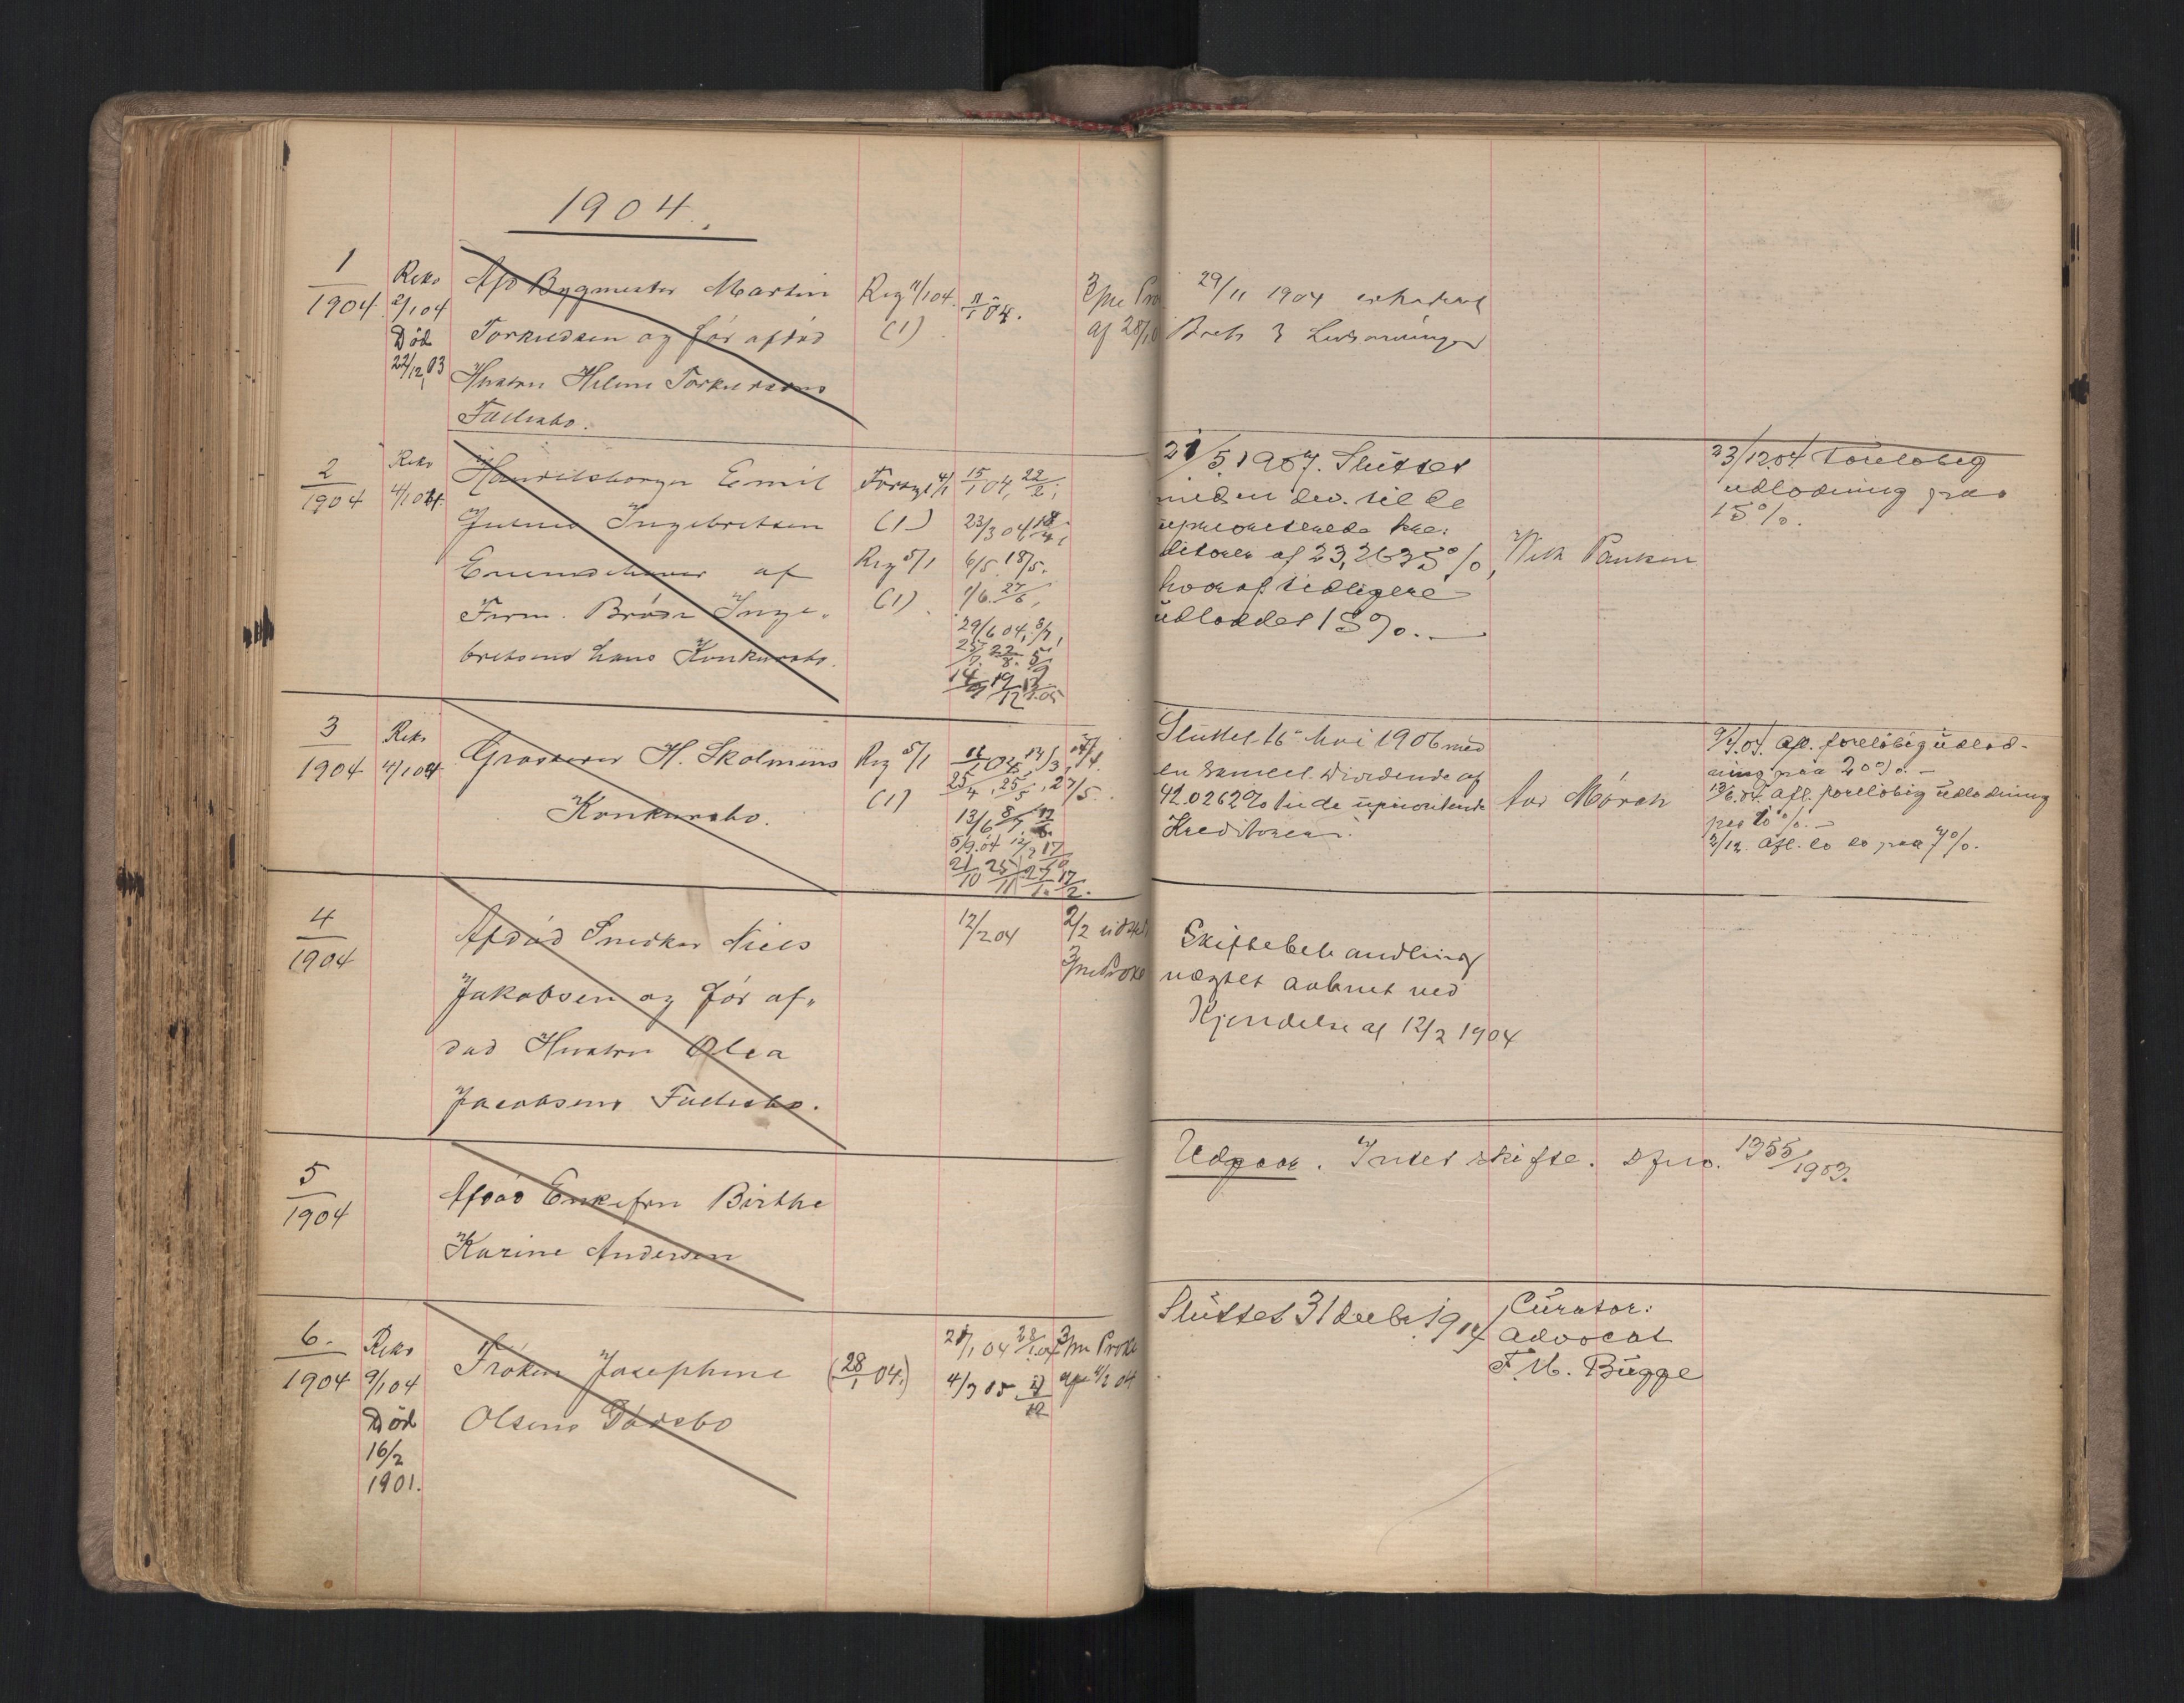 1904.
1
1904.
Reko
2/1 04
Död
22/12 03
Afd Bygmester Martin
og før afdød
Hustru Helene
Fællesbo.
Reg 11/1 04.
(1)
11/1 04.
3 pre Pro
af 28/10
29/11 1904
Brets 3
2
1904
Reko
4/1 04.
Handelsborger Emil
Julius Ingebretsen
Eneindehaver af
Firm. Brødr Inge-
bretsens hans Konkursbo.
(1)
Reg 5/1
(1)
15/1 04, 22/2,
23/3 04, 18/4,
6/5. 18/5.
1/6. 27/6,
29/6 04, 8/7,
25/7. 22/8. 5/9
21/5 1907. Sluttet
meden div. til de
uprioriterede kre-
ditorer af 23,2635%,
hvoraf tidligere
udloddet 15%. —
23/12 04 foreløbig
udlodning paa
15%.
3
1904
Reko
4/1 04
Grosserer H. Skolmens
Konkursbo.
Reg 5/1
(1)
25/4, 25/5, 27/5.
13/6 8/7
5/9.04
21/10 25/11 27/1. 17/2.
Sluttet 16 Mai 1906 med
en samlet Dividende af
42.0262% til de uprioriterede
Kreditorer.
Mørch
9/4.04. afl. foreløbig udlod-
ning paa 20%. —
13/6.04. afl. foreløbig udlodning
paa 10%. —
2/12. afl. do do paa 7%.
4
1904
Afdød Snedker Niels
Jakobsen og før af-
død Hustru Olea
Jacobsens Fællesbo.
12/2 04
2/2 udst
3 pre Prokl
Skiftebehandling
nægtet aabnet ved
Kjendelse af 12/2 1904
5
1904
Afdød Enkefru Birthe
Karine Andersen
Udgaar. Intet skifte. Dfno. 1355/1903.
6.
1904
Reko
9/1 04
Död
16/2
1901.
Frøken Josephine
Olsens Dødsbo
(28/1 04.)
4/3 05
3 pre Prokl
af 4/2 04
Sluttet 31 decbr 1904
Curator:
Advocat
F. M. Bugge